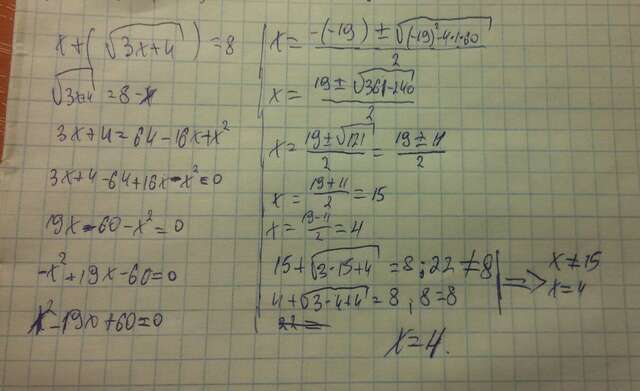 x+(√3x+4)=8
√3x+4=8-x
3x+4=64-16x+x²
3x+4-64+16x-x²=0
19x-60-x²=0
-x²+19x-60=0
x²-19x+60=0
x=-(-19)±√(-19)²-4·1·60/2
x=19±√361-240/2
x=19±√121/2=19±11/2
x=19+11/2=15
x=19-11/2=4
15+√3·15+4=8;22≠8
4+√3·4+4=8,8=8
22=
=>x≠15
x=4
x=4.